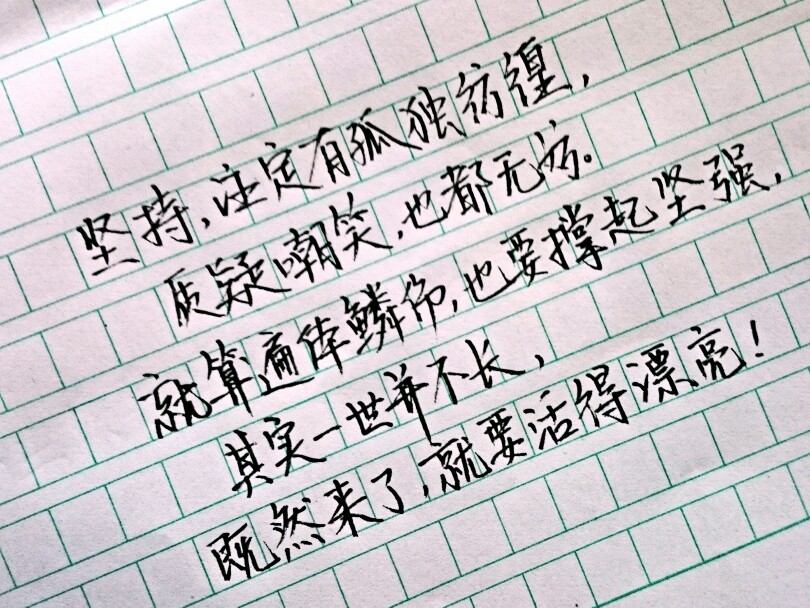 坚持,注定有孤独彷徨,
质疑嘲笑,也都无妨。
就算遍体鳞伤,也要撑起坚强,
其实一世并不长,
既然来了,就要活得漂亮!